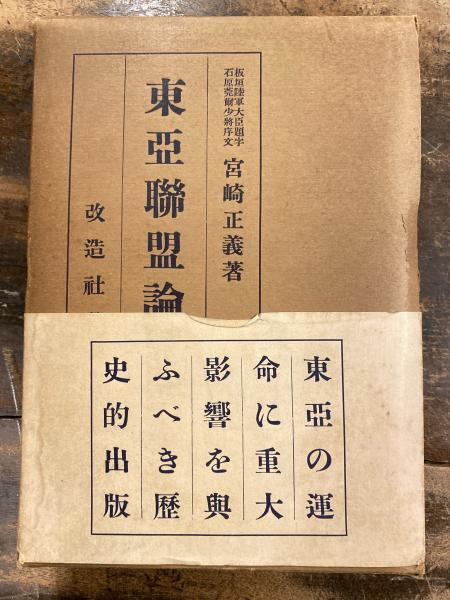 板垣陸軍大臣題字
石原莞爾少將序文
宮崎正義著
東亞聯盟論
改造社
東亞の運
命に重大
影響を與
ふべき歷
史的出版